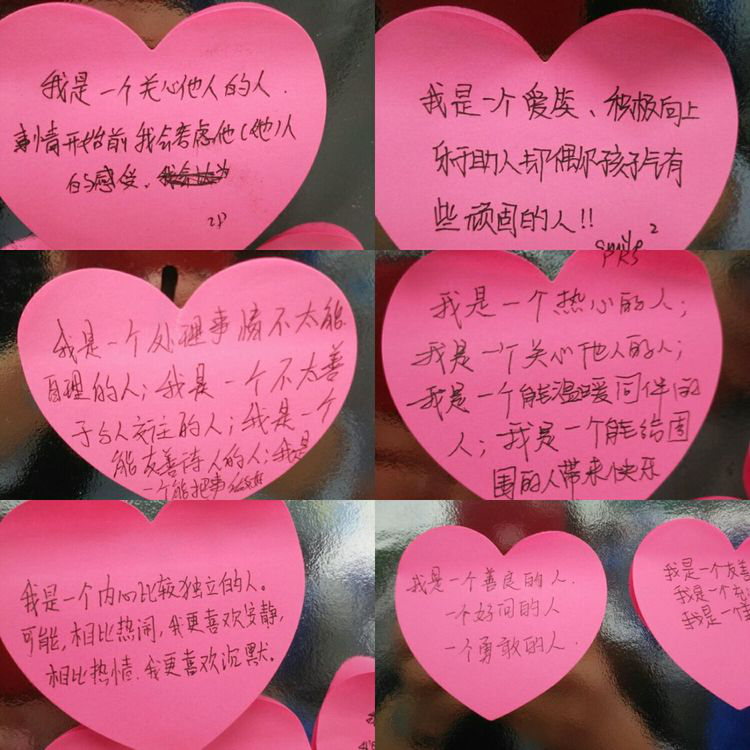 我是一个关心他人的人.
事情开始前我会考虑他(她)人
的感受、
我是一个爱笑、积极向上
乐于助人却偶尔孩子气有
些顽固的人!!
smile 2
我是一个处理事情不太能
自理的人;我是一个不太善
于与人交往的人;我是一个
能友善待人的人;我是
一个能把事做好
我是一个热心的人;
我是一个关心他人的人;
我是一个能温暖同伴的
人;我是一个能给周
围的人带来快乐
我是一个内心比较独立的人。
可能,相比热闹,我更喜欢安静,
相比热情,我更喜欢沉默。
我是一个善良的人.
一个好问的人
一个勇敢的人.
我是一个友善
我是一个
我是一个